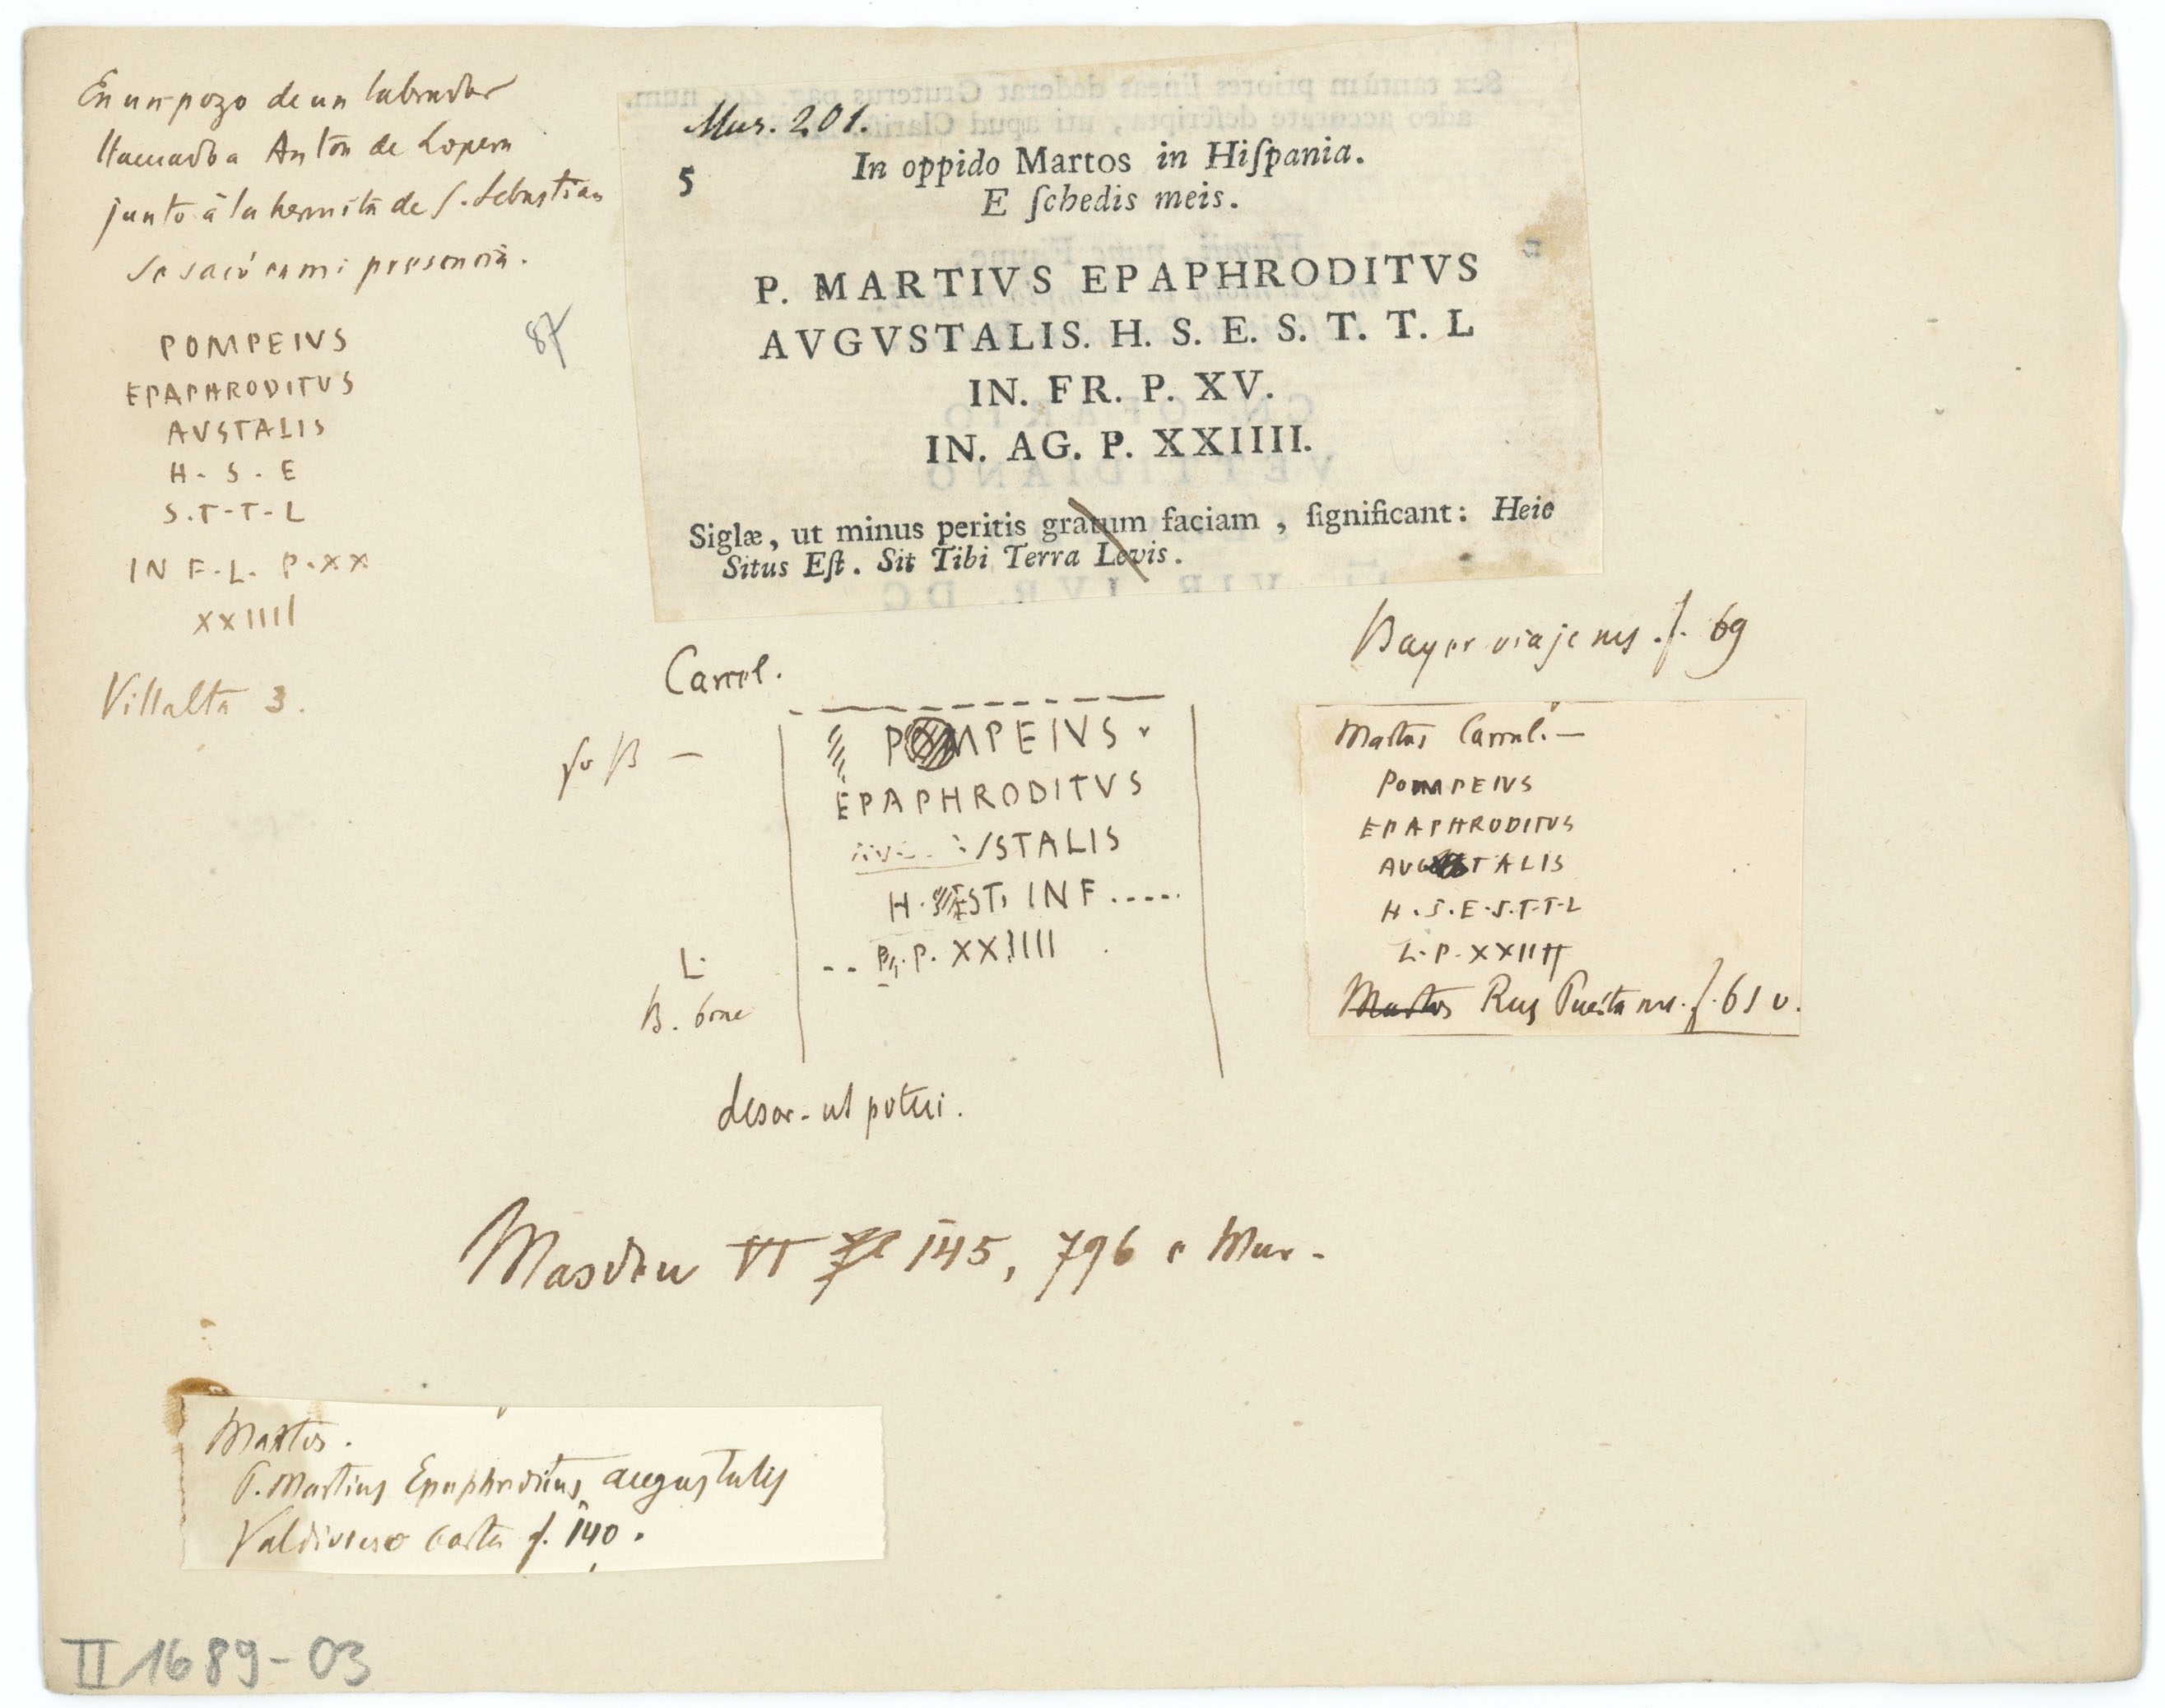 En un pozo de un labrador
llamado a Anton de Lopera
junto â la hermita de S. Sebastian
se sacó en mi presencia.
POMPEIVS
EPAPHRODITVS
AVSTALIS
H - S - E
S.T-T-L
IN F.L. P.XX
XXIIII
Villalta 3.
87
Mur. 201.
5
In oppido Martos in Hiſpania.
E ſchedis meis.
P. MARTIVS EPAPHRODITVS
AVGVSTALIS. H. S. E. S. T. T. L
IN. FR. P. XV.
IN. AG. P. XXIIII.
Siglæ, ut minus peritis gratum faciam, ſignificant: Heic
Situs Eſt. Sit Tibi Terra Levis.
Bayer viaje ms. f. 69
Carcel.
so B —
POMPEIVS
EPAPHRODITVS
STALIS
H. EST. INF.....
L.
-- P. P. XXIIII
B. bone
descr. ut potui.
Martos Carcel. —
POMPEIVS
EPAPHRODITVS
AVGVSTALIS
H.S.E.S.T.T.L
L.P.XXIIII
Martos Rus Puerta ms. f. 61 v.
Masdeu VI 145, 796 e Mur.
Martos.
P. Martius Epaphroditus augustalis
Valdivieso carta f. 140.
II 1689-03